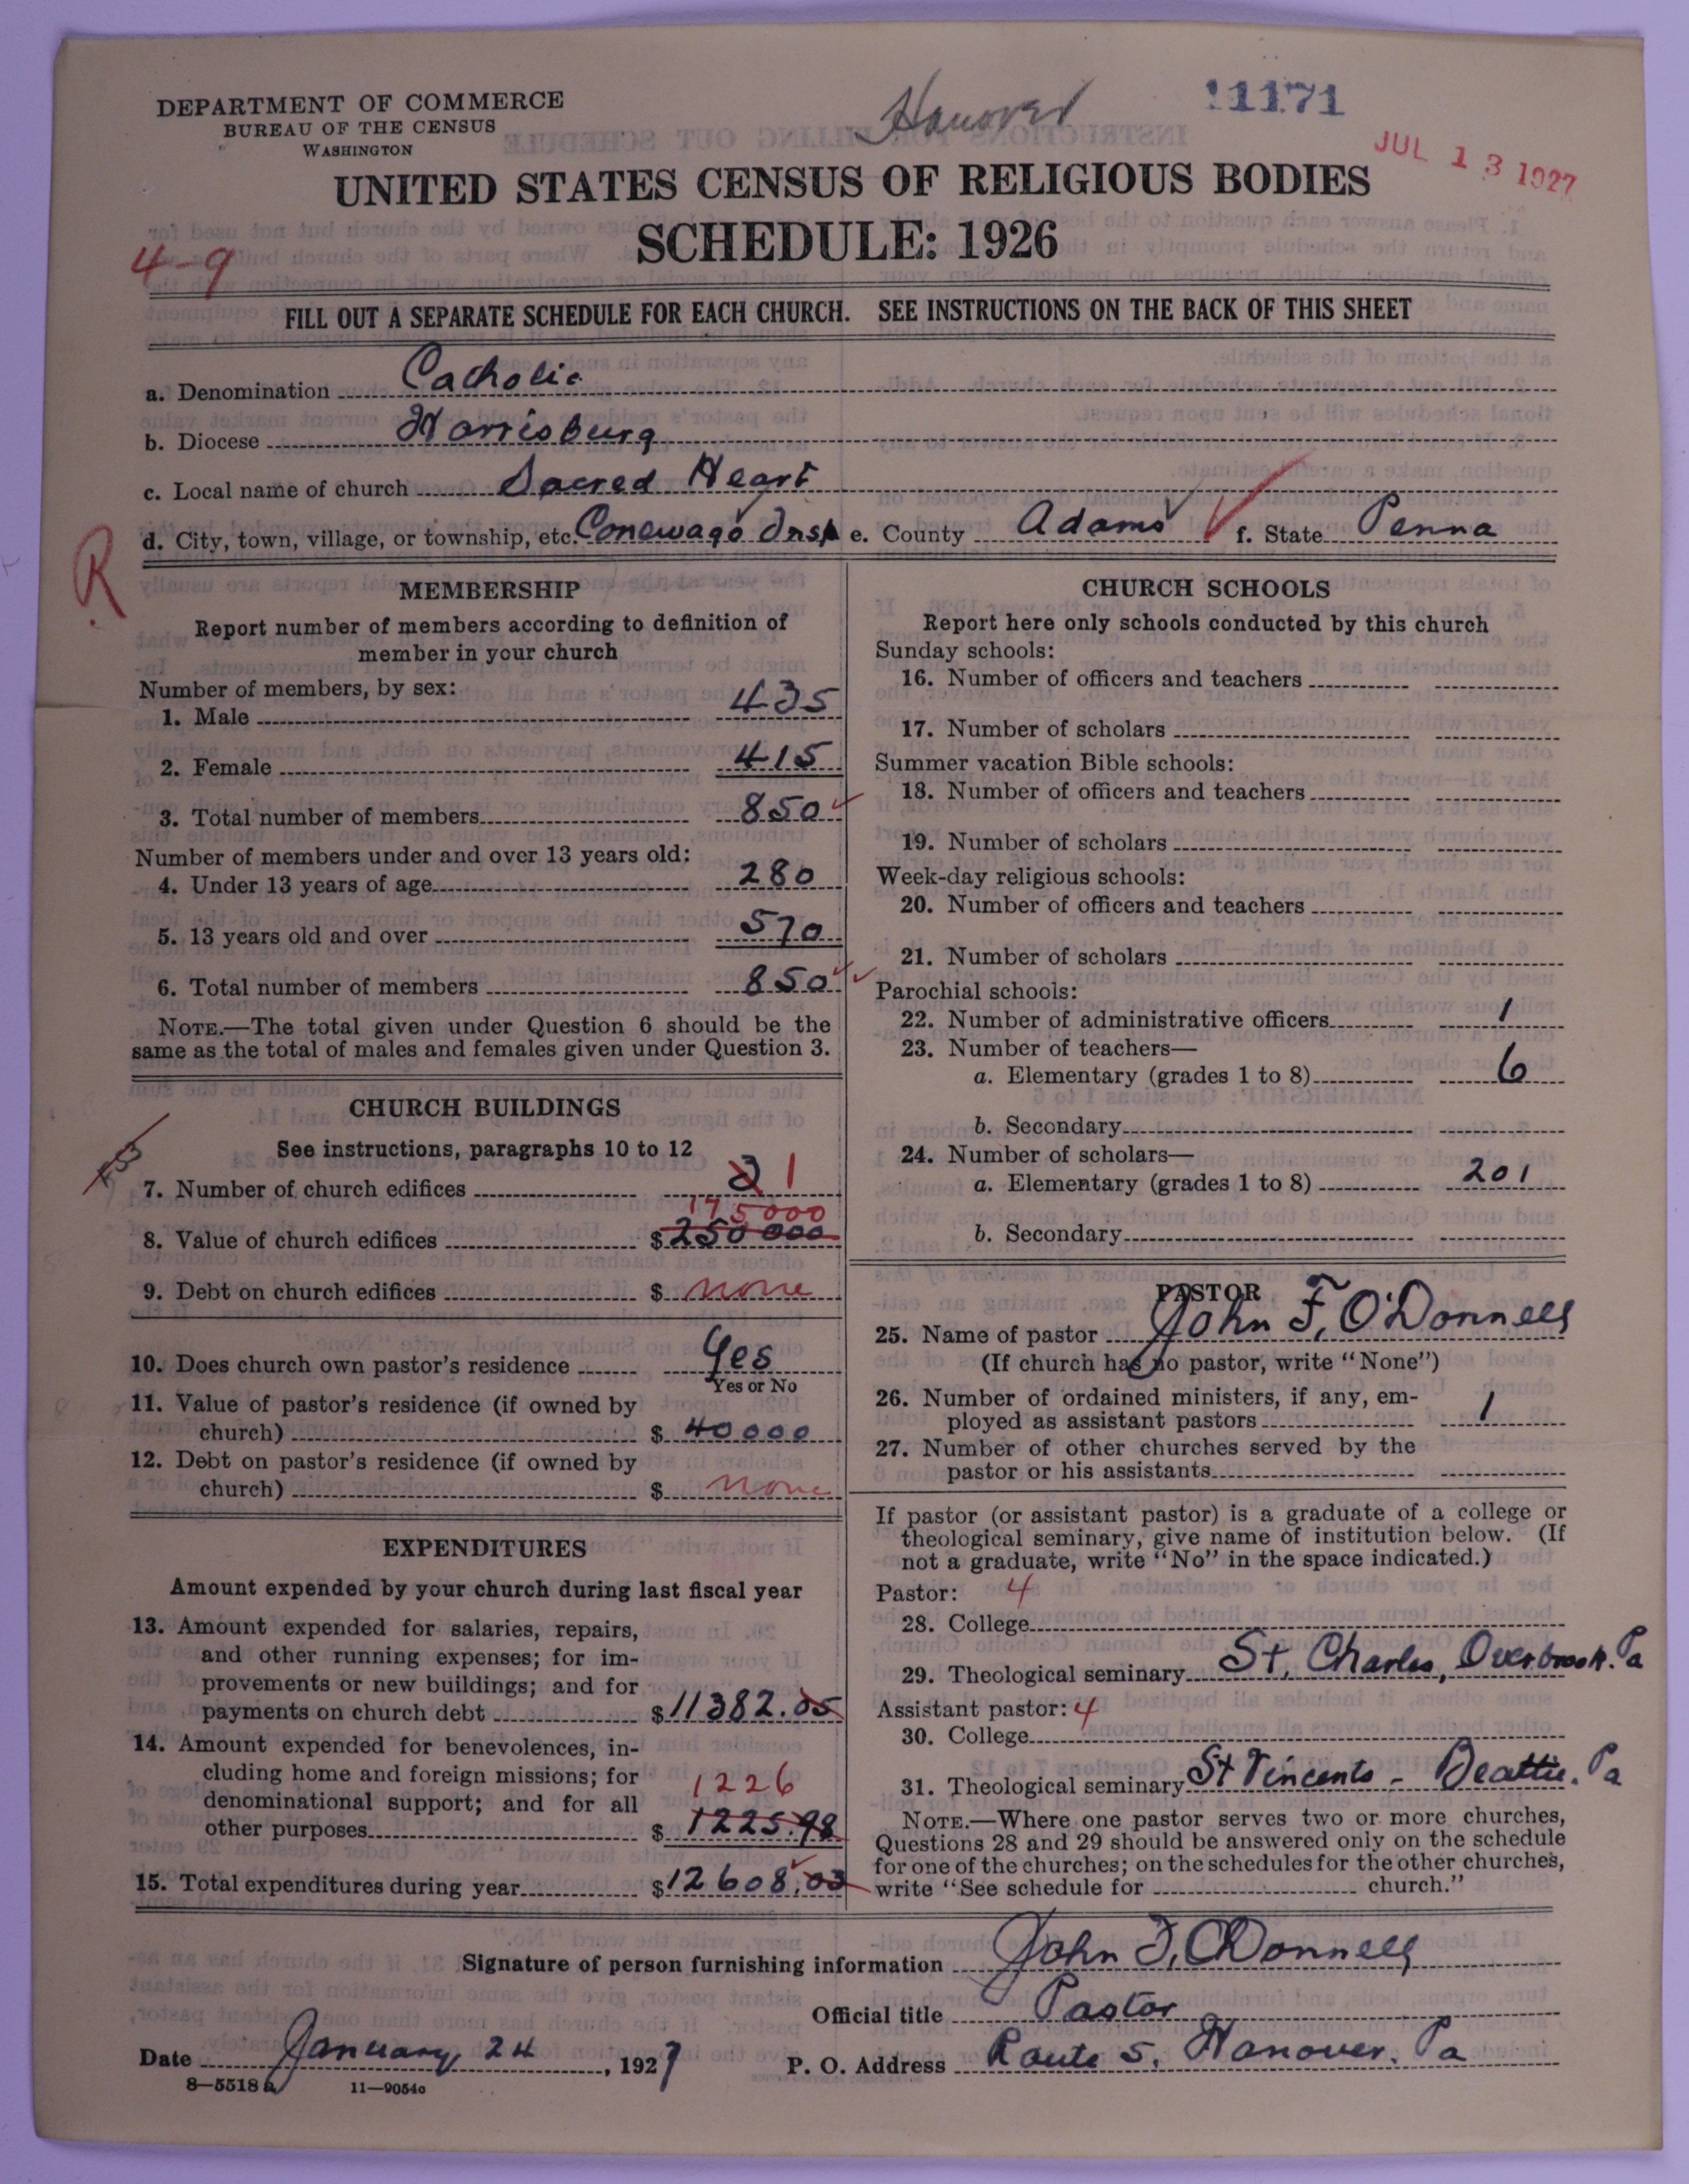 DEPARTMENT OF COMMERCE
BUREAU OF THE CENSUS
WASHINGTON
Hanover
11171
JUL 13 1927
UNITED STATES CENSUS OF RELIGIOUS BODIES
SCHEDULE: 1926
4-9
FILL OUT A SEPARATE SCHEDULE FOR EACH CHURCH. SEE INSTRUCTIONS ON THE BACK OF THIS SHEET
a. Denomination Catholic
b. Diocese Harrisburg
c. Local name of church Sacred Heart
d. City, town, village, or township, etc. Conewago Twsp e. County Adams f. State Penna
R
MEMBERSHIP
Report number of members according to definition of
member in your church
Number of members, by sex:
1. Male 435
2. Female 415
3. Total number of members 850
Number of members under and over 13 years old:
4. Under 13 years of age 280
5. 13 years old and over 570
6. Total number of members 850
NOTE.—The total given under Question 6 should be the
same as the total of males and females given under Question 3.
CHURCH BUILDINGS
See instructions, paragraphs 10 to 12
7. Number of church edifices 2 1
175000
8. Value of church edifices $ 250 000
9. Debt on church edifices $ none
10. Does church own pastor's residence Yes
Yes or No
11. Value of pastor's residence (if owned by
church) $ 40000
12. Debt on pastor's residence (if owned by
church) $ none
EXPENDITURES
Amount expended by your church during last fiscal year
13. Amount expended for salaries, repairs,
and other running expenses; for im-
provements or new buildings; and for
payments on church debt $ 11382.05
14. Amount expended for benevolences, in-
cluding home and foreign missions; for
denominational support; and for all 1226
other purposes $ 1225.98
15. Total expenditures during year $ 12608.03
CHURCH SCHOOLS
Report here only schools conducted by this church
Sunday schools:
16. Number of officers and teachers
17. Number of scholars
Summer vacation Bible schools:
18. Number of officers and teachers
19. Number of scholars
Week-day religious schools:
20. Number of officers and teachers
21. Number of scholars
Parochial schools:
22. Number of administrative officers 1
23. Number of teachers—
a. Elementary (grades 1 to 8) 6
b. Secondary
24. Number of scholars—
a. Elementary (grades 1 to 8) 201
b. Secondary
PASTOR
25. Name of pastor John F. O'Donnell
(If church has no pastor, write "None")
26. Number of ordained ministers, if any, em-
ployed as assistant pastors 1
27. Number of other churches served by the
pastor or his assistants
If pastor (or assistant pastor) is a graduate of a college or
theological seminary, give name of institution below. (If
not a graduate, write "No" in the space indicated.)
Pastor: 4
28. College
29. Theological seminary St. Charles, Overbrook. Pa
Assistant pastor: 4
30. College
31. Theological seminary St Vincents - Beattie. Pa
NOTE.—Where one pastor serves two or more churches,
Questions 28 and 29 should be answered only on the schedule
for one of the churches; on the schedules for the other churches,
write "See schedule for church."
Signature of person furnishing information John F. O'Donnell
Official title Pastor
Date January 24, 1927 P. O. Address Route 5. Hanover. Pa
8—5518 a 11—9054c